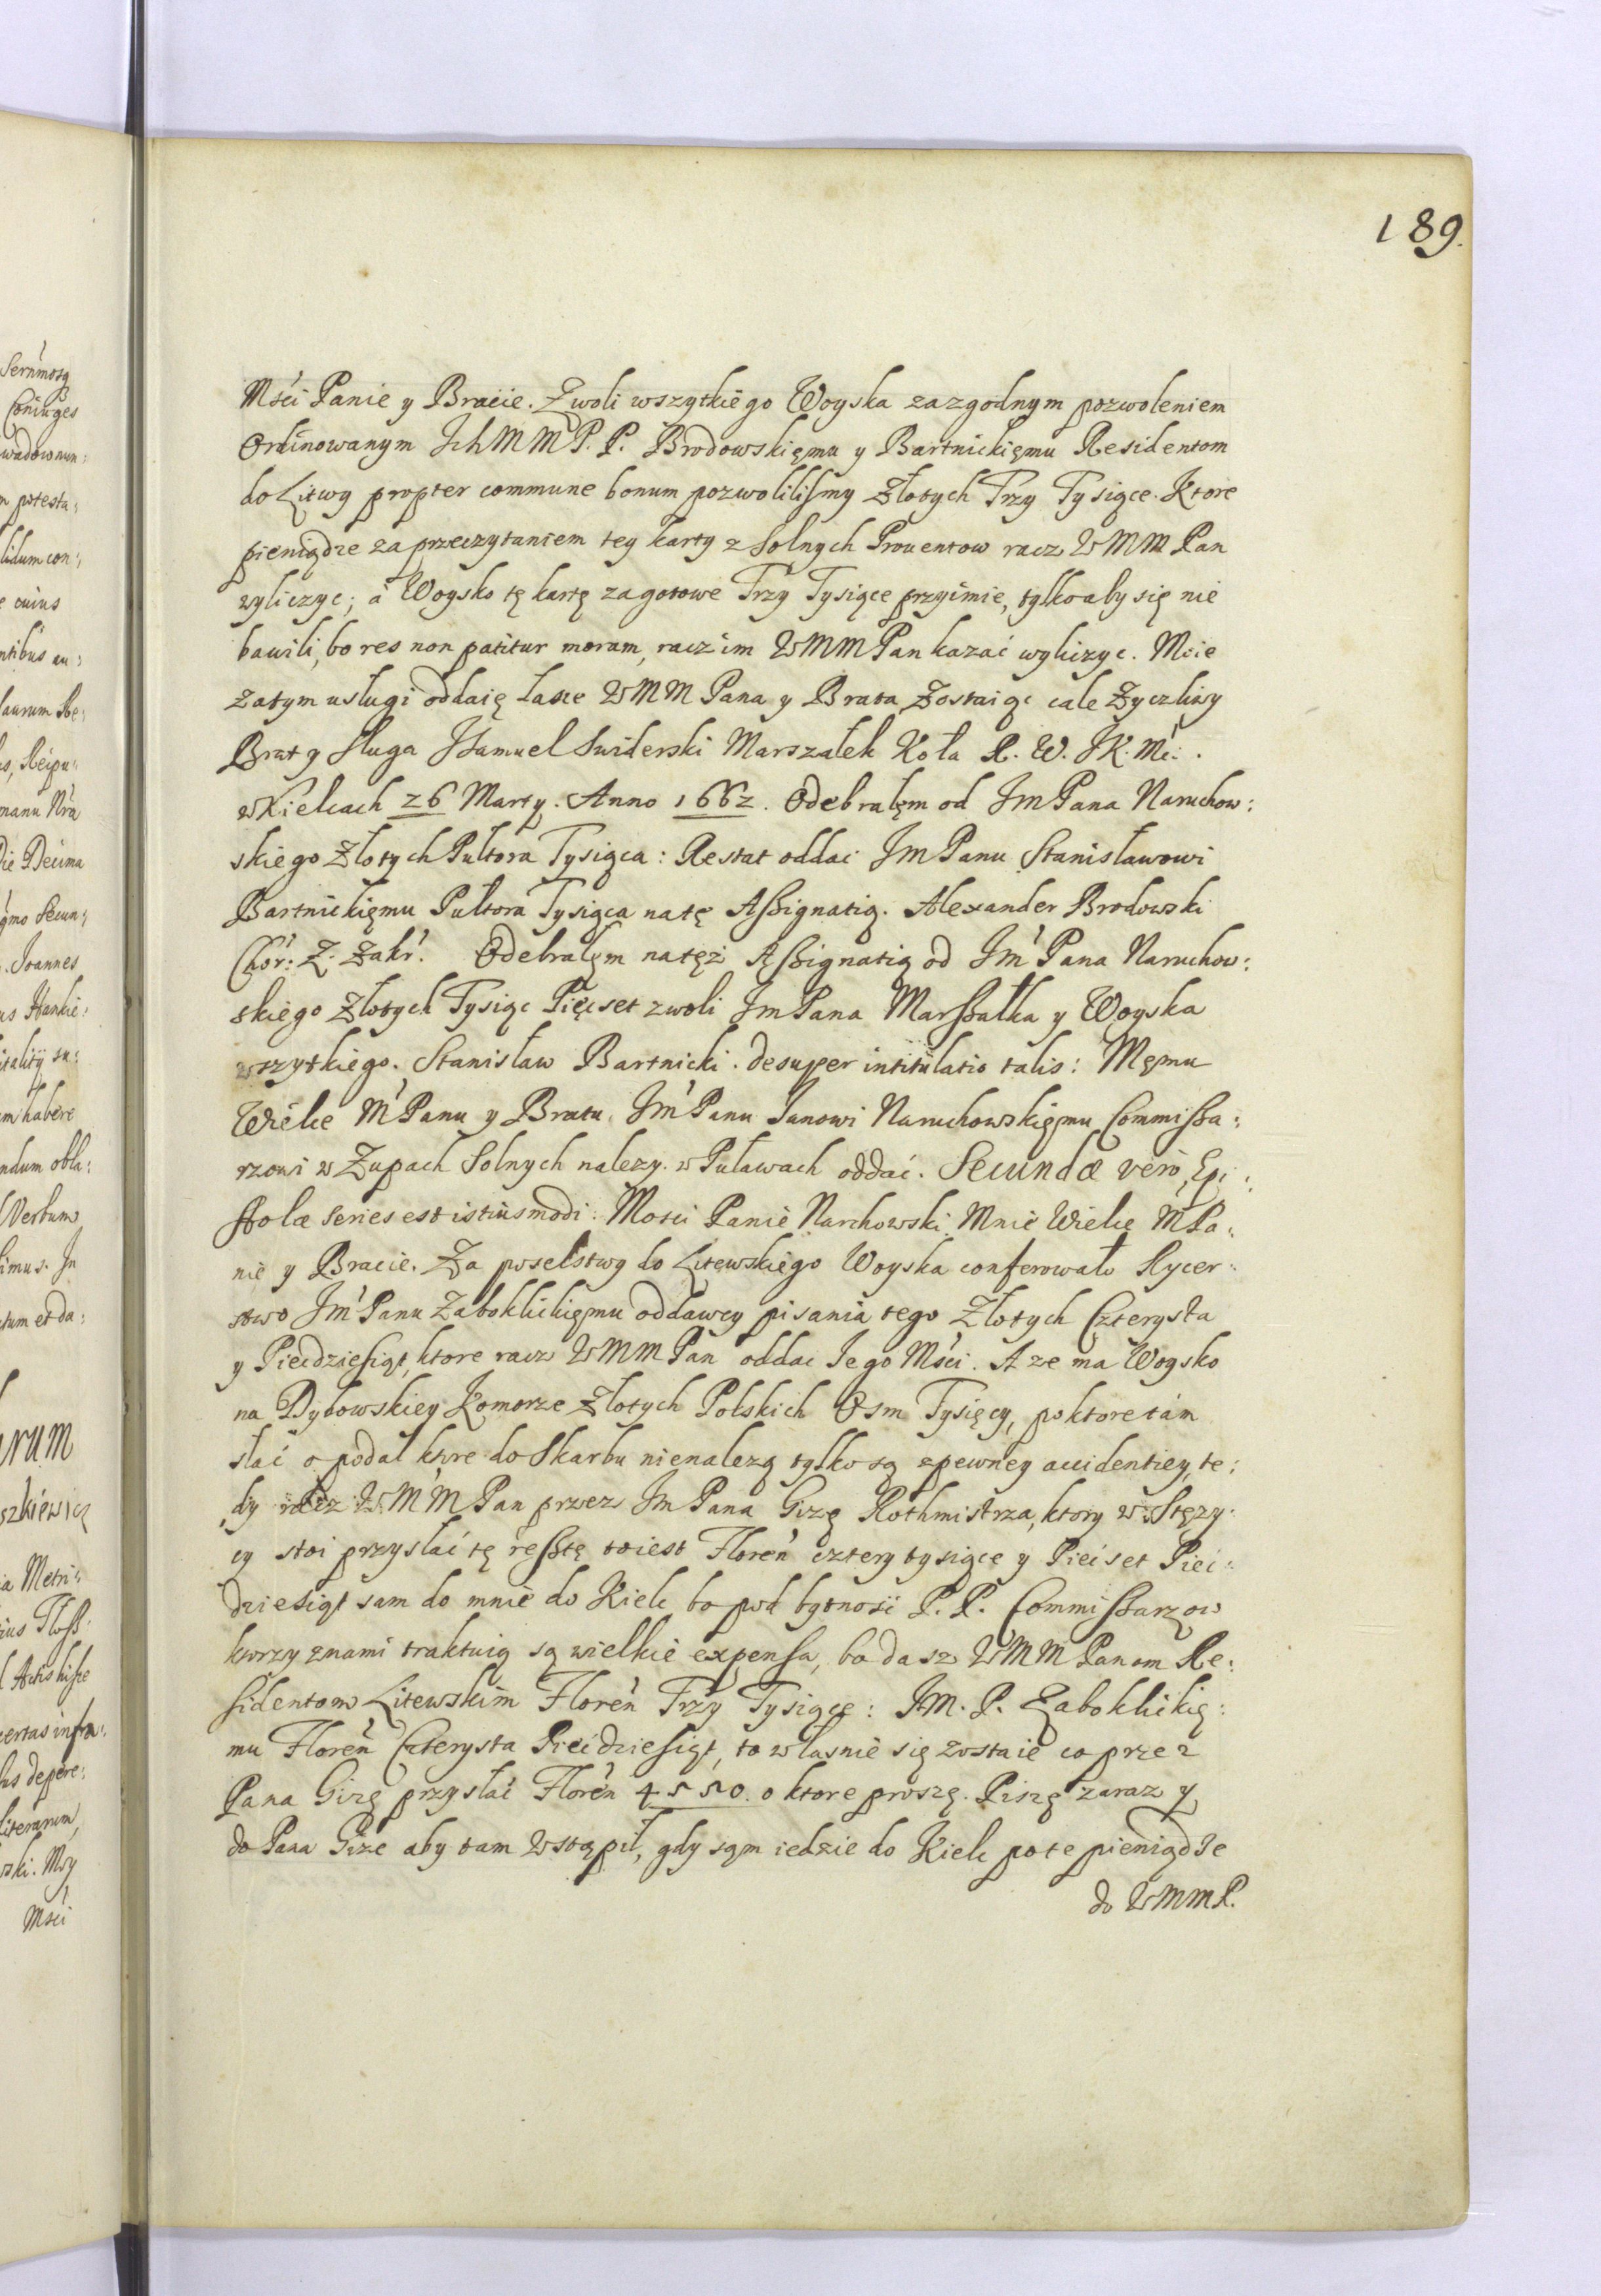 189.
Mści Panie y Bracie. Zwoli wszytkiego Woyska zazgodnym pozwoleniem
Ordinowanym IchMM P. P. Brodowskięmu y Bartnickięmu Residentom
do Litwy propter commune bonum pozwolilismy Złotych Trzy Tysiące. Ktore
pieniądze za przeczytaniem tey karty z Solnych Prouentow racz WMM Pan
wyliczyc; á Woysko tę kartę zagotowe Trzy Tysiące przyimie, tylko aby się nie
bawili, bo res non patitur moram, racz im WMM Pan kazać wyliczyc. Mcie
Zatym usługi oddaię łasce WMM Pana y Brata, Zostaiąc cale Zyczliwy
Brat y Sługa Samuel Swiderski Marszałek Koła R. W. JK. Mci.
w Kielcach 26 Marty. Anno 1662. Odebrałęm od Jm Pana Naruchow:
skiego Złotych Pułtora Tysiąca: Restat oddac Jm Panu Stanisławowi
Bartnickięmu Pułtora Tysiąca na tę Assignatią. Alexander Brodowski
Chór: Z. Zakr. Odebrałęm na tęż Assignatią od Jm Pana Naruchow:
skiego Złotych Tysiąc Pięcset zwoli Jm Pana Marszałka y Woyska
wszytkiego. Stanisław Bartnicki. desuper intitulatio talis: Męmu
Wielce M Panu y Bratu. Jm Panu Janowi Naruchowskięmu Commissa:
rzowi w Zupach Solnych nalezy. w Puławach oddać. Secundæ verò, Epi:
stolæ series est istiusmodi: Mosci Panie Narchowski Mnie Wielce M Pa:
nie y Bracie. Za poselstwy do Litewskiego Woyska conferowało Rycer:
stwo Jm Panu Zaboklickięmu oddawcy pisania tego Złotych Czterysta
y Piecdziesiąt, ktore racz WMM Pan oddac Jego Mści. A ze ma Woysko
na Dybowskiey Komorze Złotych Polskich Osm Tysięcy, po ktore tám
słać opodal ktore do Skarbu nienalezą tylko są zpewney accidentiey, te:
dy racz WMM Pan przez Jm Pana Gizę Rothmistrza, ktory w Stęzy:
cy stoi przysłać tę resztę to iest Floren cztery tysiące y Piecset Piec:
dziesiąt sam do mnie do Kielc bo pod bytnosć P. P. Commissarzow
ktorzy znami traktuią są wielkie expensa, bo dasz WMM Panom Re:
sidentom Litewskim Floren Trzy Tysiące: JM. P. Zaboklickię:
mu Floren Czterysta Piecdziesiąt, to własnie się zostaie co przez
Pana Gizę przysłać Floren 4550. o ktore proszę. Piszę zaraz y
do Pana Gize aby tam wstąpił, gdy sąm iedzie do Kielc po te pieniądze
do WMMP.